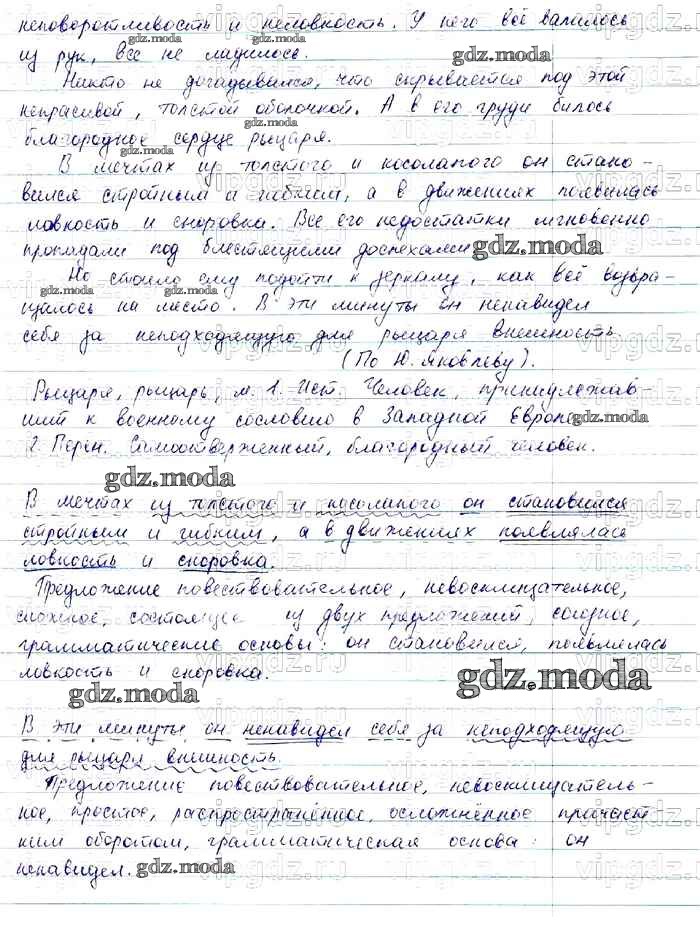 неповоротливость и неловкость. У него всё валилось
из рук, всё не ладилось.
gdz.moda
Никто не догадывался, что скрывается под этой
некрасивой, толстой оболочкой. А в его груди билось
gdz.moda
благородное сердце рыцаря.
gdz.moda
В мечтах из толстого и косолапого он стано-
вился стройным и гибким, а в движениях появилась
ловкость и сноровка. Все его недостатки мгновенно
пропадали под блестящими доспехами. gdz.moda
Но стоило ему подойти к зеркалу, как всё возвра-
gdz.moda gdz.moda
щалось на место. В эти минуты он ненавидел
себя за неподходящую для рыцаря внешность.
(По Ю. Яковлеву).
Рыцаря, рыцарь, м. 1. Ист. Человек, принадлежав-
ший к военному сословию в Западной Европе.
gdz.moda
2. Перен. Самоотверженный, благородный человек.
gdz.moda
В мечтах из толстого и косолапого он становился
стройным и гибким, а в движениях появлялась
ловкость и сноровка.
gdz.moda
Предложение повествовательное, невосклицательное,
сложное, состоящее из двух предложений, союзное,
грамматические основы: он становился, появлялась
ловкость и сноровка.
gdz.moda gdz.moda
В эти минуты он ненавидел себя за неподходящую
для рыцаря внешность.
Предложение повествовательное, невосклицатель-
ное, простое, распространённое, осложнённое причаст
ным оборотом, грамматическая основа: он
ненавидел. gdz.moda